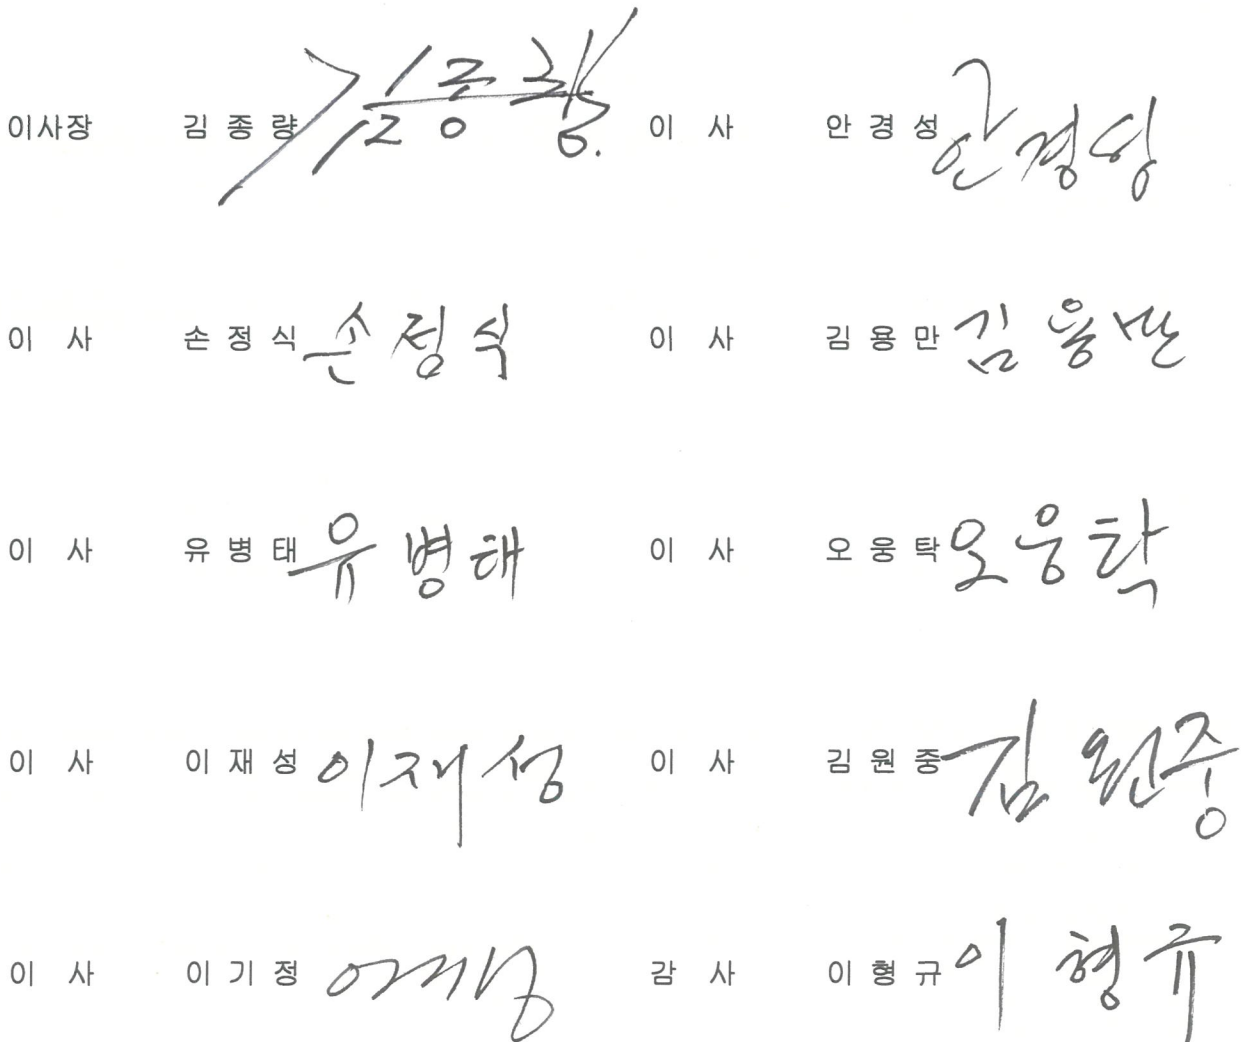 이사장 김종량 김종량 이 사 안경성 안경성
이 사 손정식 손정식 이 사 김용만 김용만
이 사 유병태 유병태 이 사 오웅탁 오웅탁
이 사 이재성 이재성 이 사 김원중 김원중
이 사 이기정 감 사 이형규 이형규